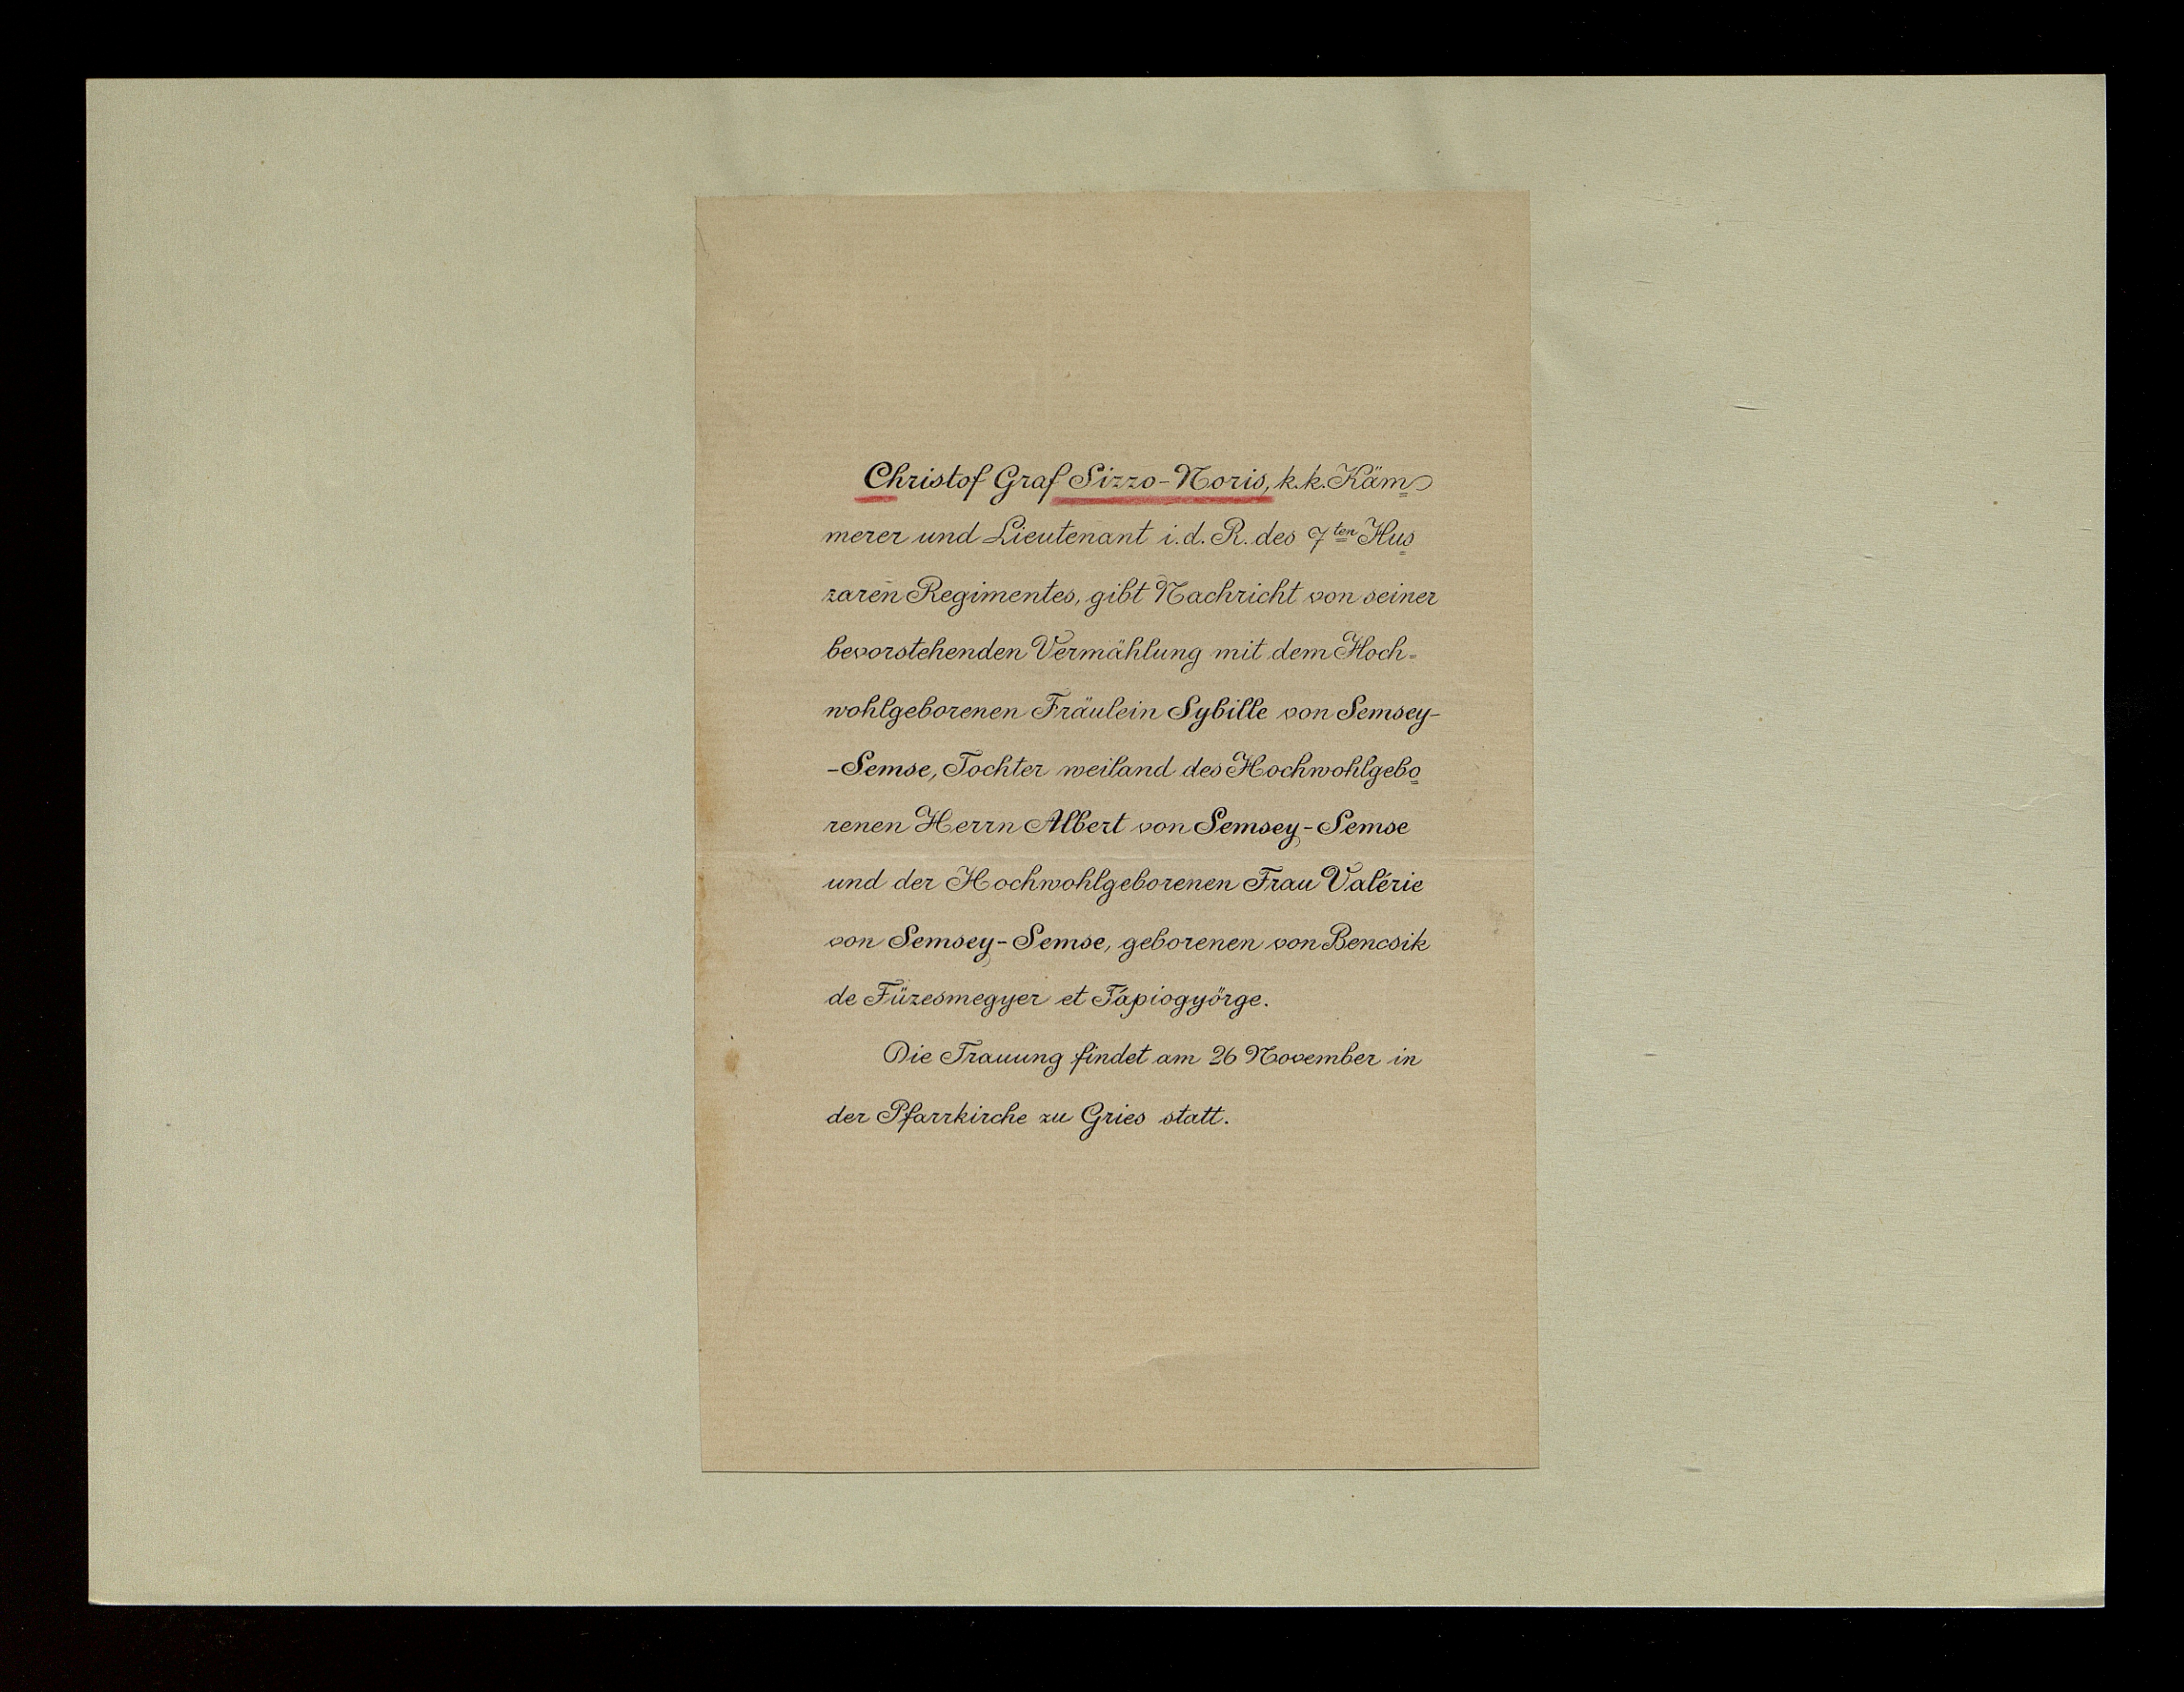 Christof Graf Sizzo-Noris, k.k. Käm=
merer und Lieutenant i.d.R. des 7ten Hus=
zaren Regimentes, gibt Nachricht von seiner
bevorstehenden Vermählung mit dem Hoch=
wohlgeborenen Fräulein Sybille von Semsey-
-Semse, Tochter weiland des Hochwohlgebo=
renen Herrn Albert von Semsey-Semse
und der Hochwohlgeborenen Frau Valérie
von Semsey-Semse, geborenen von Bencsik
de Füzesmegyer et Tápiogyörge.
Die Trauung findet am 26 November in
der Pfarrkirche zu Gries statt.